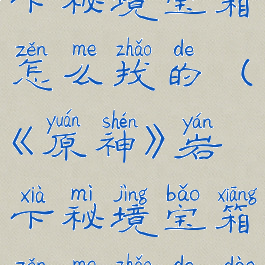 下秘境宝箱
zěn me zhǎo de
怎么找的（
yuán shén yán
《原神》岩
xià mì jìng bǎo xiāng
下秘境宝箱